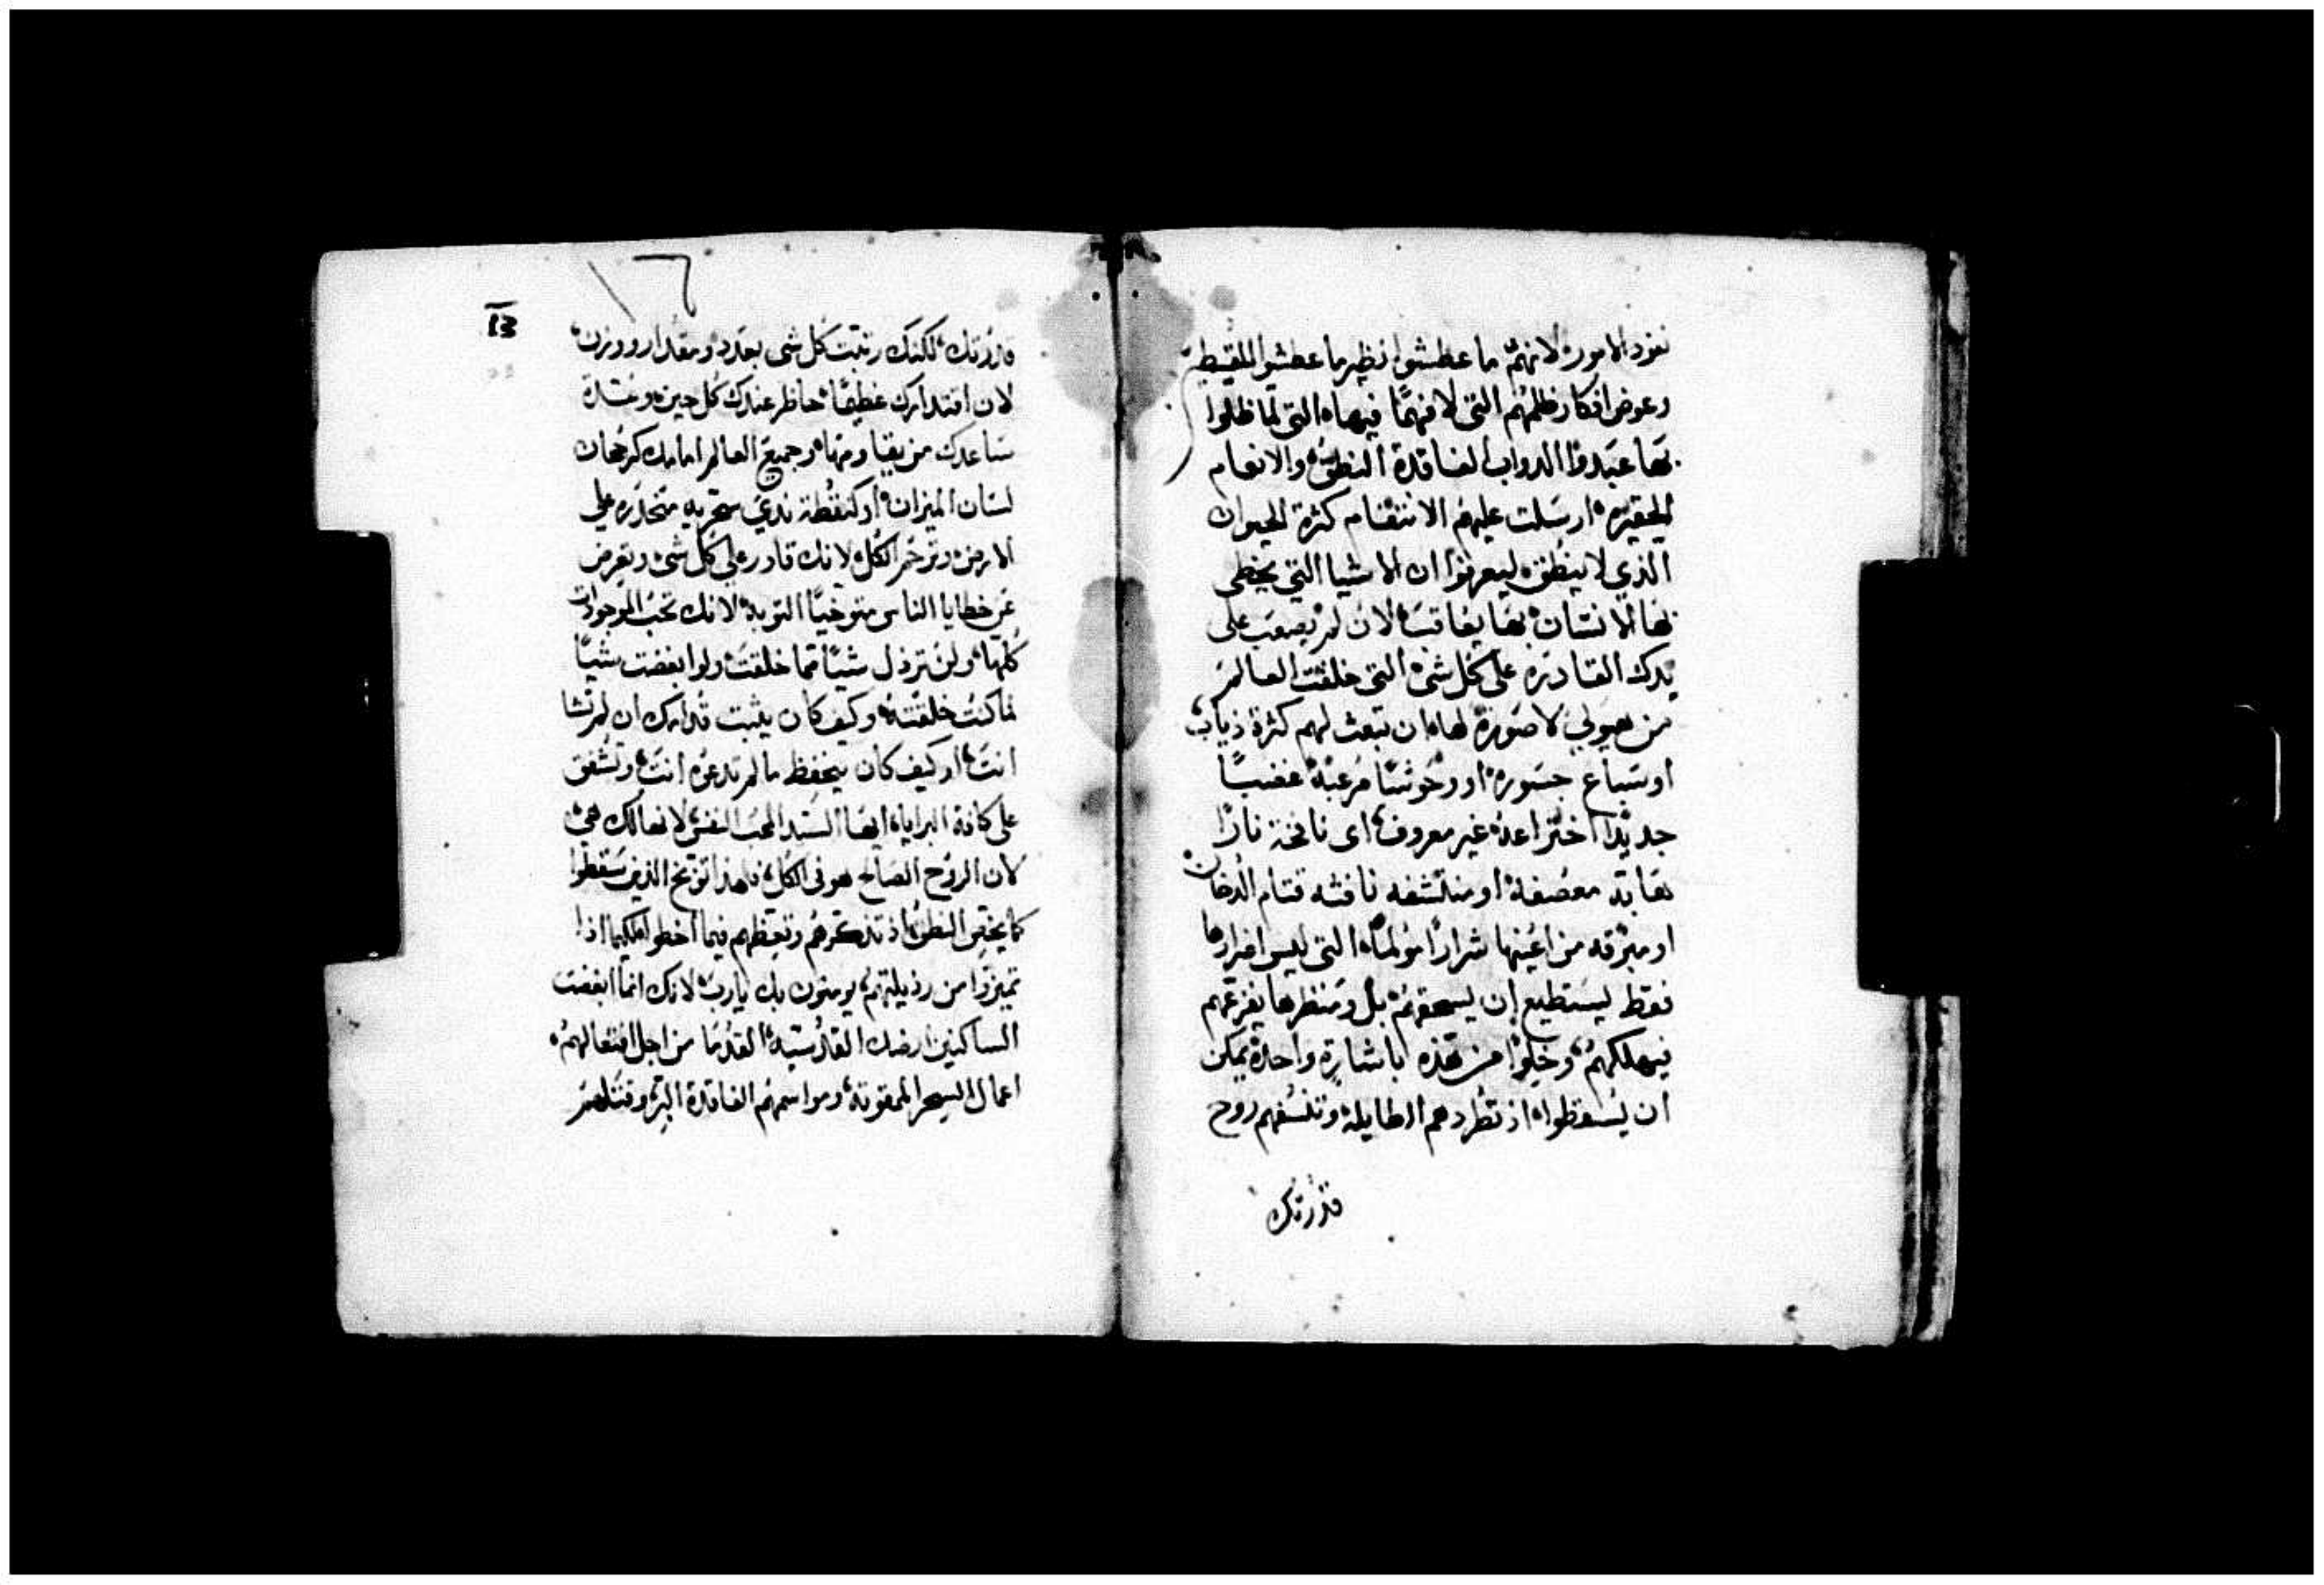 نفود الامور لانهم ما عطشوا نظير ما عطشوا المقسطين
وعوض افكار ظلمهم التي لا فهمًا فيها التي لما ظلوا
بها عبدوا الدواب الفاقدة النطق والانعام
الحقيره ارسلت عليهم الانتقام كثرة الحيوان
الذي لا ينطق ليعرفوا ان الاشيا التي يخطى
بها الانسان بها يعاقب لان لم يصعب على
يدك القادره على كل شى التي خلقت العالم
من هيولي لا صورة لها ان تبعث لهم كثرة ذياب
او سباع جسوره او وحوشًا مرعبة غضبًا
جديدًا اختراعه غير معروف اى نافخة نارًا
معصفة او منتشفه نافثه قتام الدخان
او مبرقه من اعينها شرارًا مولمًا التي ليس اضرارها
فقط يستطيع ان يسحقهم بل ومنظرها يفزعهم
فيهلكهم وخلوا من هذه باشارة واحدة يمكن
ان يسقطوا اذ تطردهم الطايلة وتنسفهم روح
قدرتك
١٦
13
قدرتك لكنك رتبت كل شى بعدد ومقدار ووزن
لان اقتدارك عظيمًا حاظر عندك كل حين وشدة
ساعدك من يقاومها وجميع العالم امامك كرجحان
لسان الميزان او كنقطة ندي سحريه منحدره علي
الارض وترحم الكل لانك قادر على كل شى وتعرض
عن خطايا الناس متوخيًا التوبة لانك تحب الموجودات
كلها ولن ترذل شيًا مما خلقت ولو ابغضت شيًا
لما كنت خلقته وكيف كان يثبت قدامك ان لم تشا
انت او كيف كان ينحفظ ما لم تدعوه انت وتشفق
على كافة البرايا ايها السيد المحب النفس لانها لك هي
لان الروح الصالح هو في الكل فلهذا توبخ الذين سقطوا
كما يختص النطق اذ تذكرهم وتعظهم فيما اخطوا لكيما اذا
تميزوا من رذيلتهم يومنون بك يارب لانك انما ابغضت
الساكنين ارضك القدسية القدما من اجل افتعالهم
اعمال السحر الممقوتة ومواسمهم الفاقدة البر وقتلهم